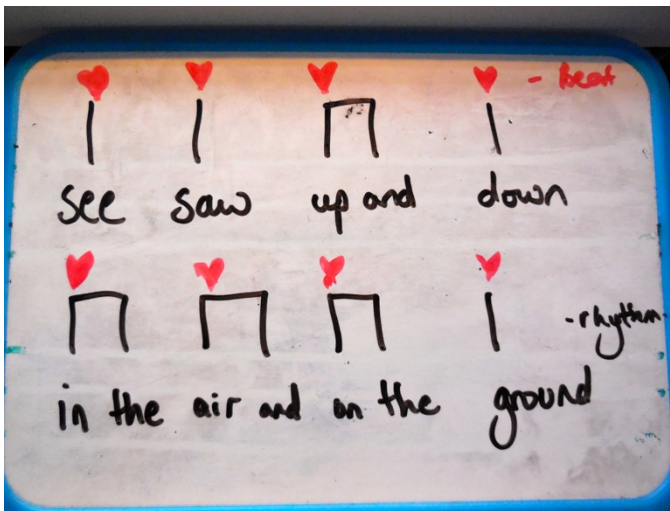 - beat
see saw up and down
- rhythm
in the air and on the ground